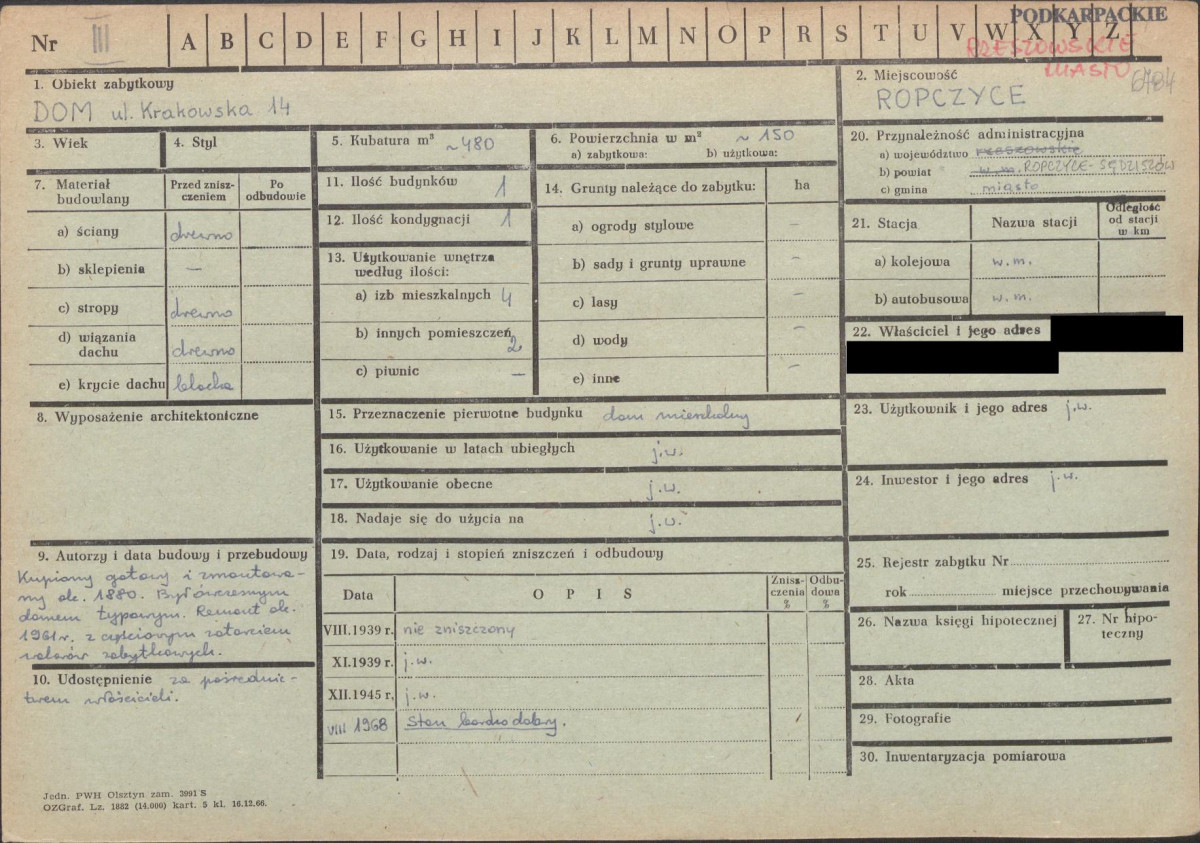 Nr III A B C D E F G H I J K L M N O P R S T U V W X Y Z
PODKARPACKIE
RZESZOWSKIE
MIASTO
6784
1. Obiekt zabytkowy
DOM ul. Krakowska 14
2. Miejscowość
ROPCZYCE
3. Wiek
4. Styl
5. Kubatura m³ ~480
6. Powierzchnia w m² ~ 150
a) zabytkowa: b) użytkowa:
7. Materiał budowlany
Przed zniszczeniem
Po odbudowie
a) ściany drewno
b) sklepienia —
c) stropy drewno
d) wiązania dachu drewno
e) krycie dachu blacha
8. Wyposażenie architektoniczne
9. Autorzy i data budowy i przebudowy
Kupiony gotowy i zmontowa-
ny ok. 1880. Był ówczesnym
domem typowym. Remont ok.
1961r. z częściowym zatarciem
walorów zabytkowych.
10. Udostępnienie za pośrednic-
twem właścicieli.
Jedn. PWH Olsztyn zam. 3991 S
OZGraf. Lz. 1882 (14.000) kart. 5 kl. 16.12.66.
11. Ilość budynków 1
12. Ilość kondygnacji 1
13. Użytkowanie wnętrza
według ilości:
a) izb mieszkalnych 4
b) innych pomieszczeń 2
c) piwnic —
14. Grunty należące do zabytku: ha
a) ogrody stylowe —
b) sady i grunty uprawne —
c) lasy —
d) wody —
e) inne —
15. Przeznaczenie pierwotne budynku dom mieszkalny
16. Użytkowanie w latach ubiegłych j.w.
17. Użytkowanie obecne j.w.
18. Nadaje się do użycia na j.w.
19. Data, rodzaj i stopień zniszczeń i odbudowy
Data O P I S Zniszczenia % Odbudowa %
VIII.1939 r. nie zniszczony
XI.1939 r. j.w.
XII.1945 r. j.w.
VIII 1968 Stan bardzo dobry.
20. Przynależność administracyjna
a) województwo rzeszowskie
b) powiat w.m. ROPCZYCE-SĘDZISZÓW
c) gmina miasto
21. Stacja
Nazwa stacji
Odległość od stacji w km
a) kolejowa w.m.
b) autobusowa w.m.
22. Właściciel i jego adres
23. Użytkownik i jego adres j.w.
24. Inwestor i jego adres j.w.
25. Rejestr zabytku Nr
rok miejsce przechowywania
26. Nazwa księgi hipotecznej
27. Nr hipoteczny
28. Akta
29. Fotografie
30. Inwentaryzacja pomiarowa